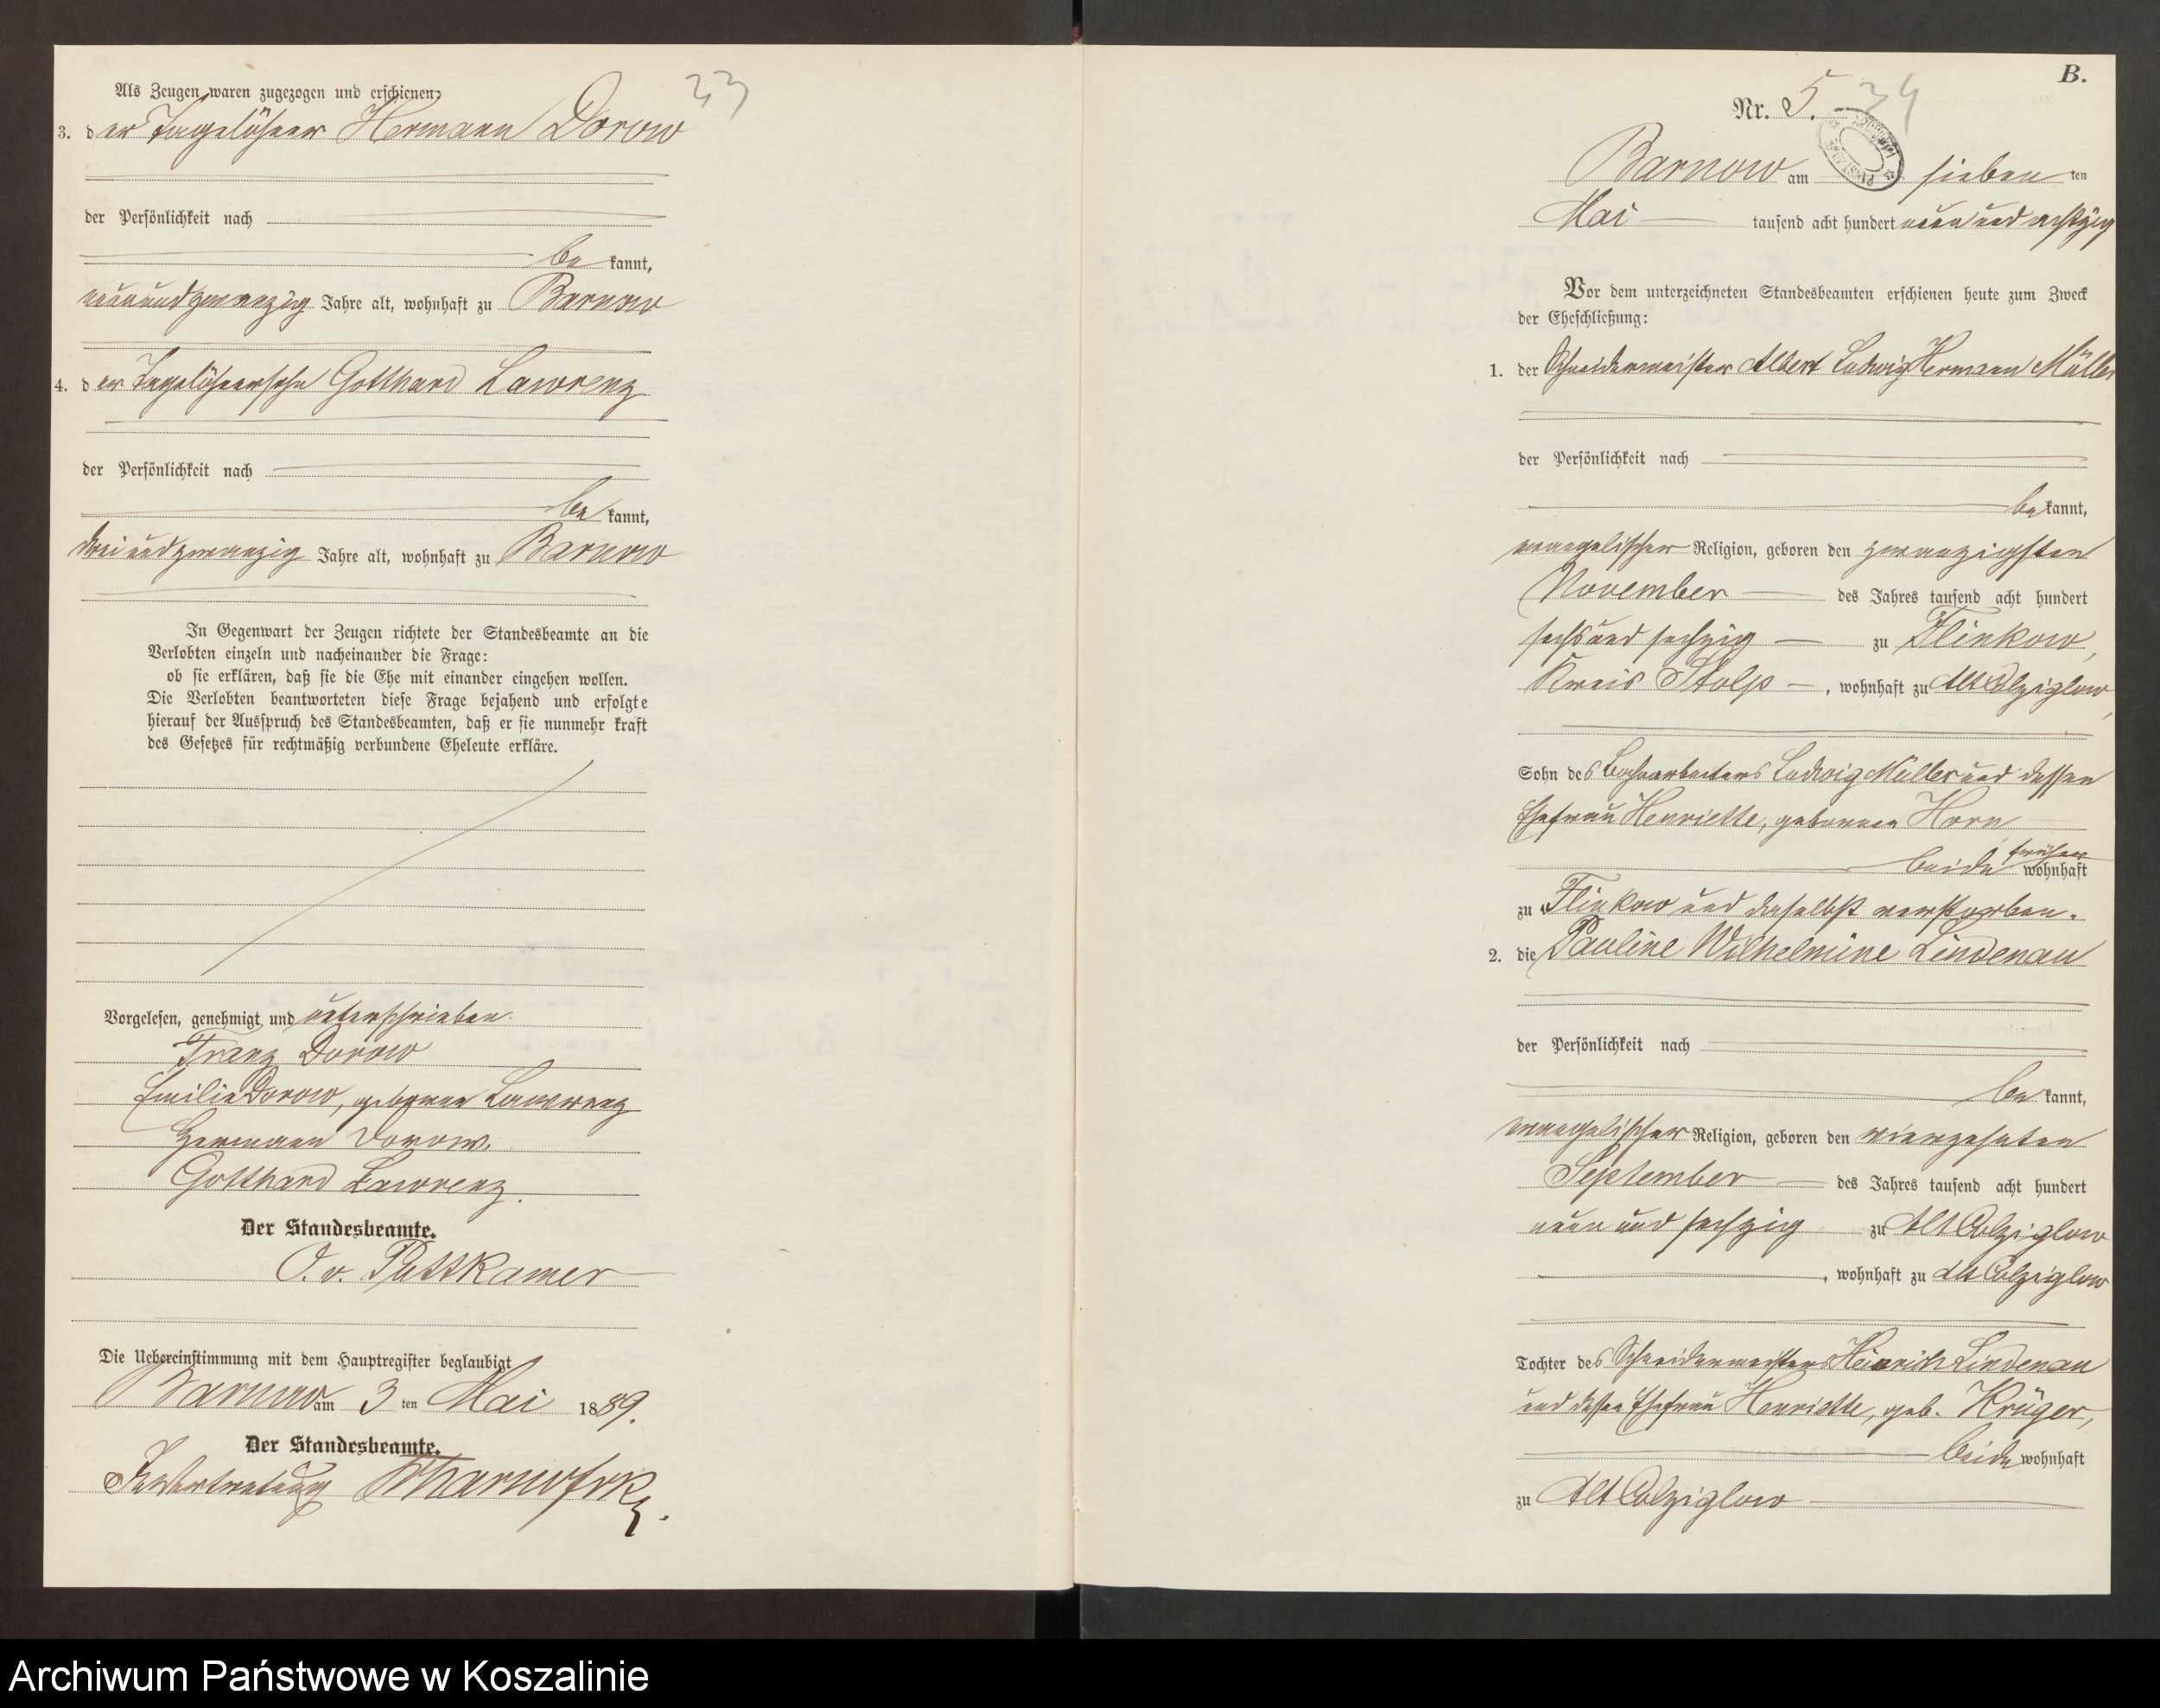 33
Als Zeugen waren zugezogen und erschienen:
3. der Tagelöhner Hermann Dorow
der Persönlichkeit nach
be kannt,
neunundzwanzig Jahre alt, wohnhaft zu Barnow
4. der Tagelöhnersohn Gotthard Lawrenz
der Persönlichkeit nach
be kannt,
dreiundzwanzig Jahre alt, wohnhaft zu Barnow
In Gegenwart der Zeugen richtete der Standesbeamte an die
Verlobten einzeln und nacheinander die Frage:
ob sie erklären, daß sie die Ehe mit einander eingehen wollen.
Die Verlobten beantworteten diese Frage bejahend und erfolgte
hierauf der Ausspruch des Standesbeamten, daß er sie nunmehr kraft
des Gesetzes für rechtmäßig verbundene Eheleute erkläre.
Vorgelesen, genehmigt und unterschrieben.
Franz Dorow
Emilie Dorow, geborene Lawrenz
Hermann Dorow.
Gotthard Lawrenz.
Der Standesbeamte.
O. v. Puttkamer
Die Uebereinstimmung mit dem Hauptregister beglaubigt
Barnow am 3 ten Mai 1889.
Der Standesbeamte.
In Vertretung
B.
Nr. 5. 34
Barnow am sieben ten
Mai tausend acht hundert neun und achtzig
Vor dem unterzeichneten Standesbeamten erschienen heute zum Zweck
der Eheschließung:
1. der Schneidermeister Albert Ludwig Hermann Müller
der Persönlichkeit nach
be kannt,
evangelischer Religion, geboren den zwanzigsten
November des Jahres tausend acht hundert
sechs und sechzig zu Flinkow,
Kreis Stolp, wohnhaft zu Alt Colziglow,
Sohn des Ludwig Müller und dessen
Ehefrau Henriette, geborenen Horn
beide früher wohnhaft
zu Flinkow und daselbst verstorben.
2. die Pauline Wilhelmine Lindenau
der Persönlichkeit nach
be kannt,
evangelischer Religion, geboren den vierzehnten
September des Jahres tausend acht hundert
neun und sechzig zu Alt Colziglow
, wohnhaft zu Alt Colziglow
Tochter des Schneidermeisters Heinrich Lindenau
und dessen Ehefrau Henriette, geb. Krüger,
beide wohnhaft
zu Alt Colziglow
Archiwum Państwowe w Koszalinie